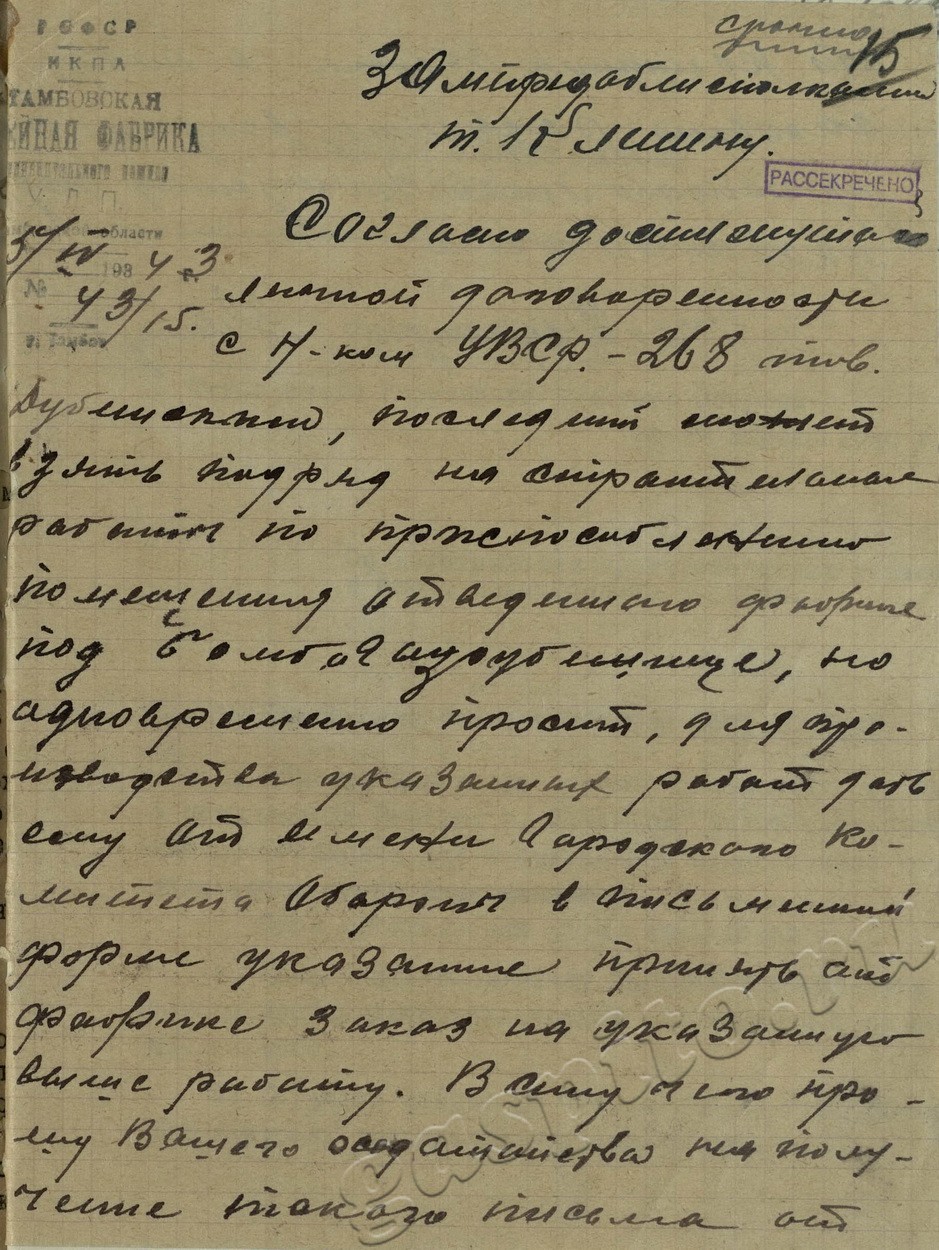 РСФСР
НКПЛ
ТАМБОВСКАЯ
ФАБРИКА
области
5/IV 1934 43 г.
№ 43/15.
г. Тамбов
срочно
15
Зампредоблисполкома
т. Клишину.
РАССЕКРЕЧЕНО
Согласно достигнутой
личной договоренности
с Н-ком УВСР.-268 тов.
последний может
взять подряд на строительные
работы по приспособлению
помещения отведенного фабрике
под бомбогазоубежище, но
одновременно просит, для про-
изводства указанных работ дать
ему от имени Городского Ко-
митета Обороны в письменной
форме указание принять от
фабрике заказ на указанную
выше работу. В силу чего про-
шу Вашего ходатайства на полу-
чение такого письма от
gaspito.ru